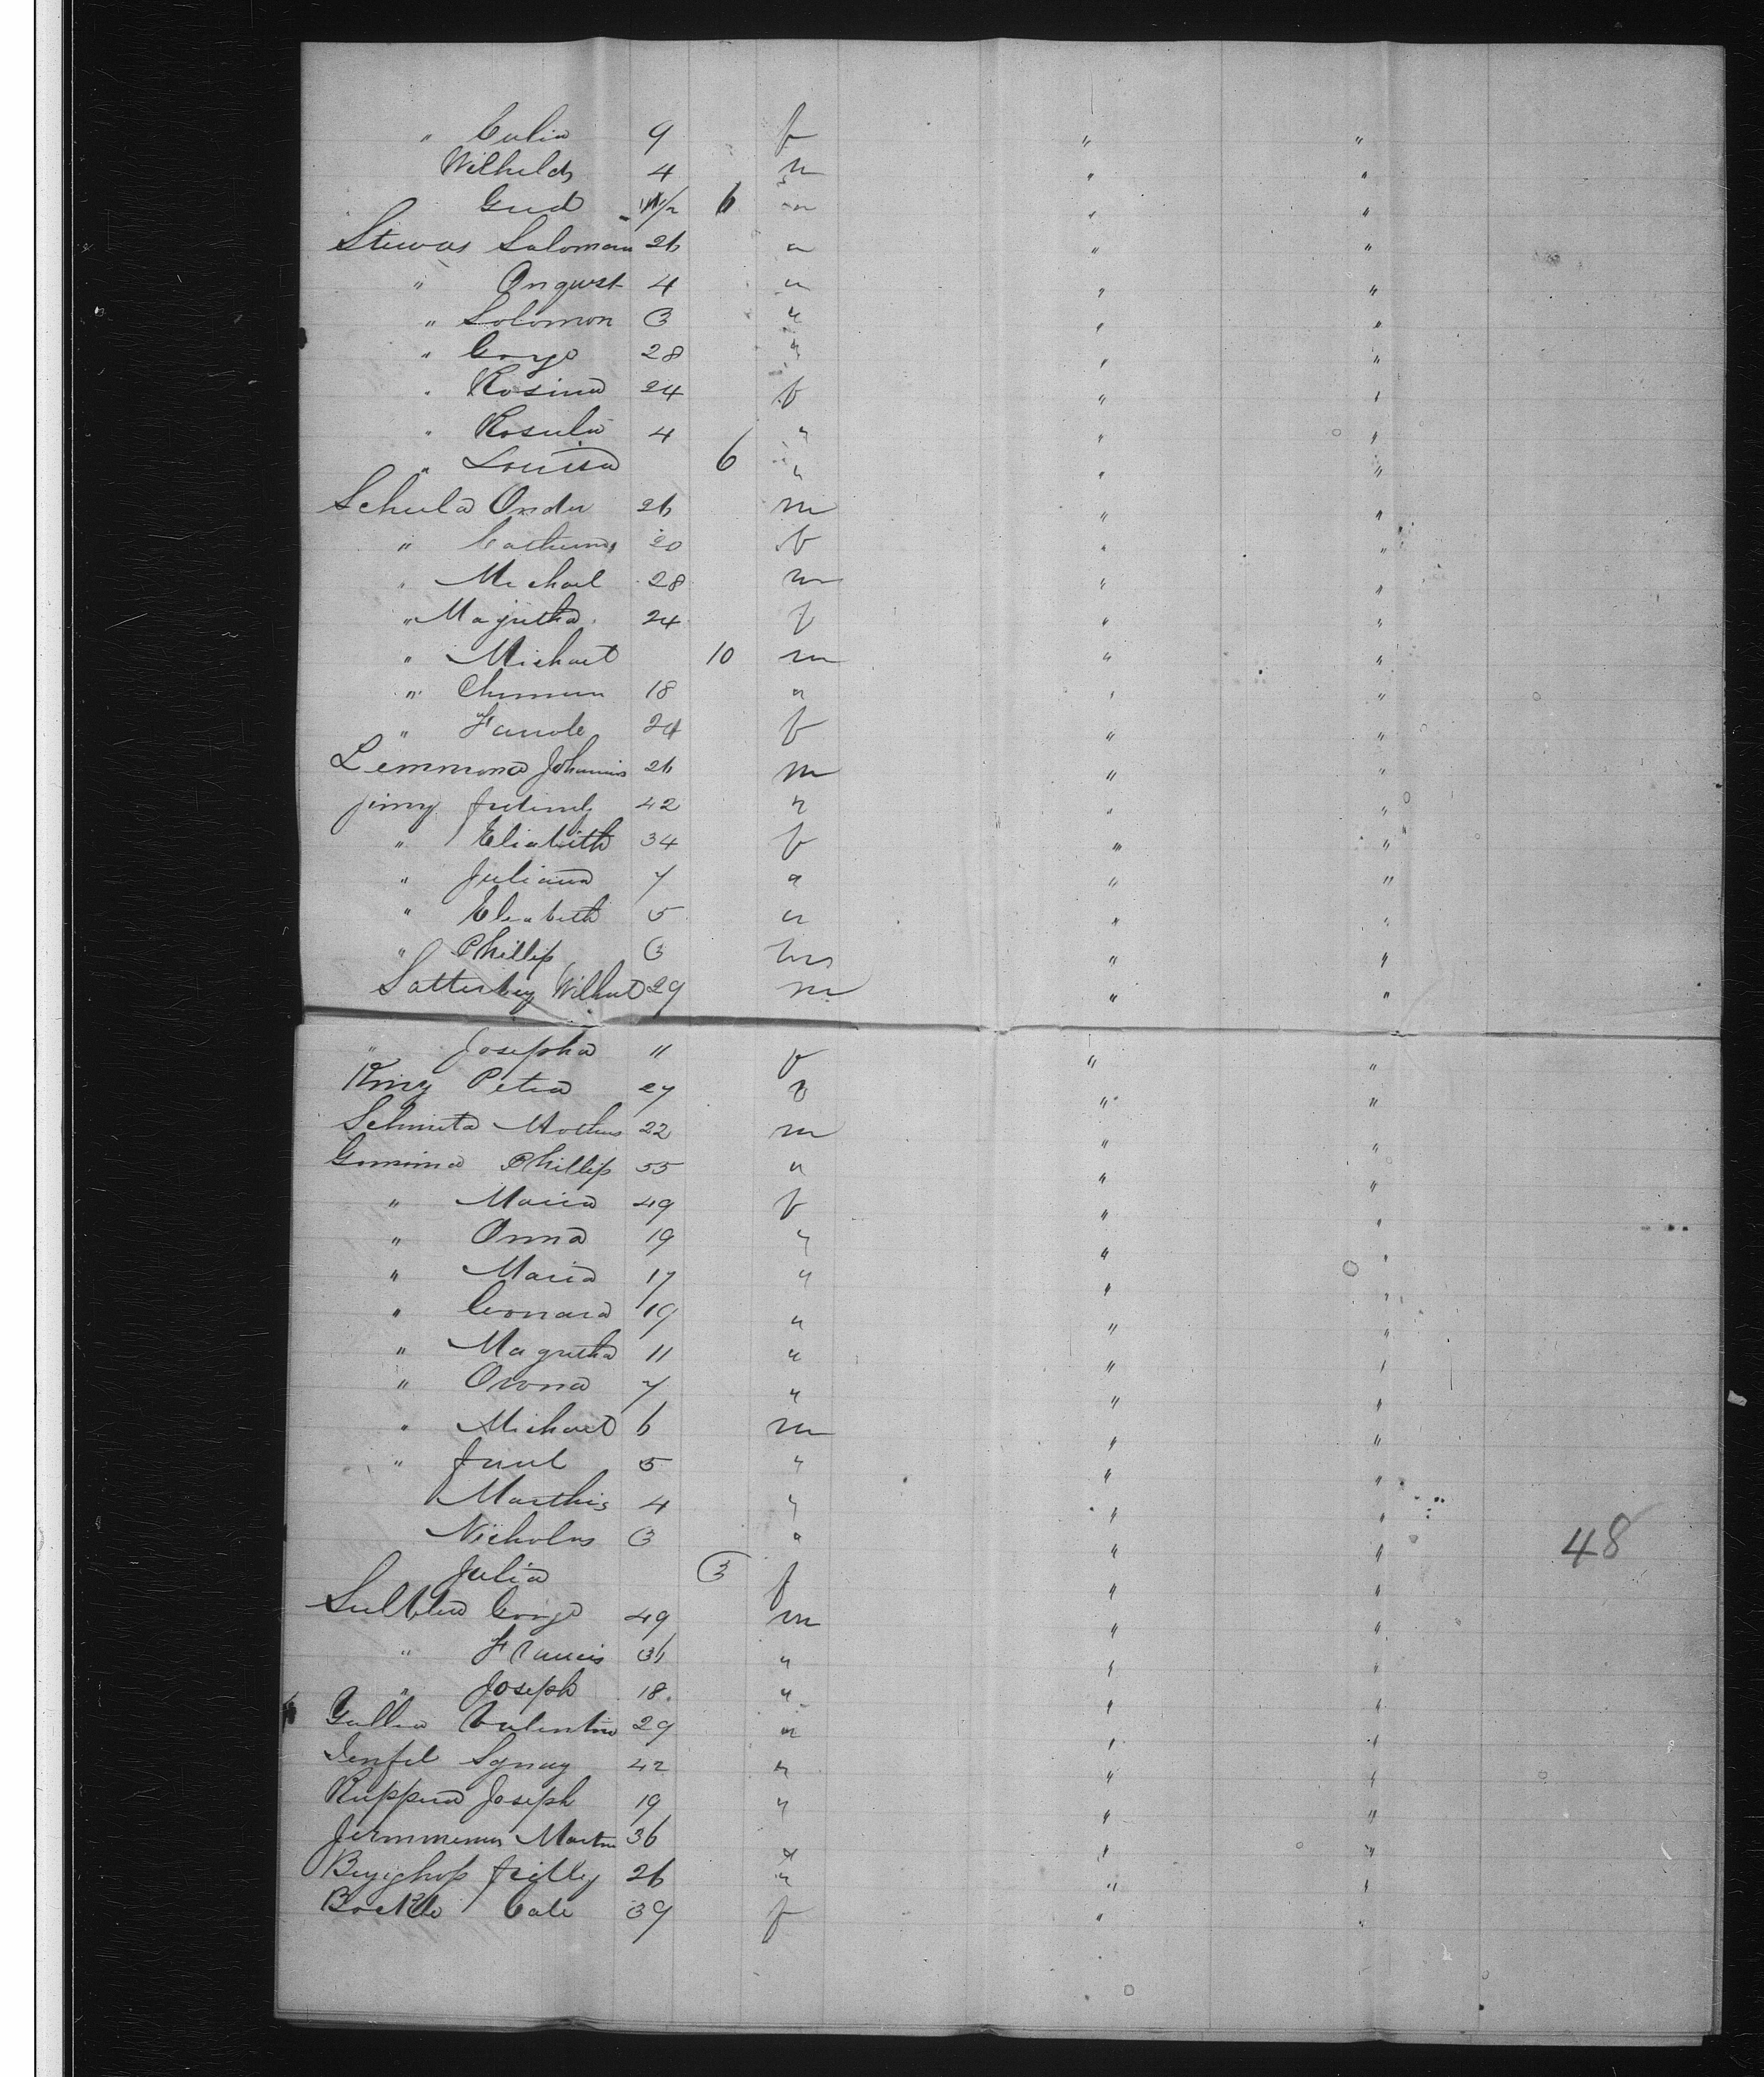 " Culia 9 f " "
Wilhelds 4 m " "
Gud 6 " " "
Stewas Salomon 26 " " "
" Ongust 4 " " "
" Solomon 3 " " "
" Corge 28 " " "
" Rosina 24 f " "
" Rosula 4 " " "
" Louisa 6 " " "
Schula Onder 26 m " "
" Cathurna 20 f " "
" Michael 28 m " "
" Magretha 24 f " "
" Michael 10 m " "
" Chumun 18 " " "
" Farrole 24 f " "
Lemmond Johannis 26 m " "
Jimy 42 " " "
" Eliabith 34 f " "
" Juliana 7 " " "
" Eleabeth 5 " " "
" Phillip 3 m " "
Satterbey Wilhut 29 m " "
" Josepha 11 f " "
King Petra 27 f " "
Schmita Mothus 22 m " "
Gomima Phillip 55 " " "
" Maria 49 f " "
" Onna 19 " " "
" Maria 17 " " "
" Conrara 19 " " "
" Magretha 11 " " "
" Orona 7 " " "
" Michael 6 m " "
" Juul 5 " " "
Marthis 4 " " "
Nicholus 3 " " "
48
Julia 3 f " "
Sulblea Corge 49 m " "
" Francis 36 " " "
" Joseph 18 " " "
Gullia Valentine 29 " " "
Ienfel Sgnay 42 " " "
Ruppua Joseph 19 " " "
Jermmenus Martin 36 " " "
Buyghop Frilly 26 " " "
Bockle Cale 39 f " "